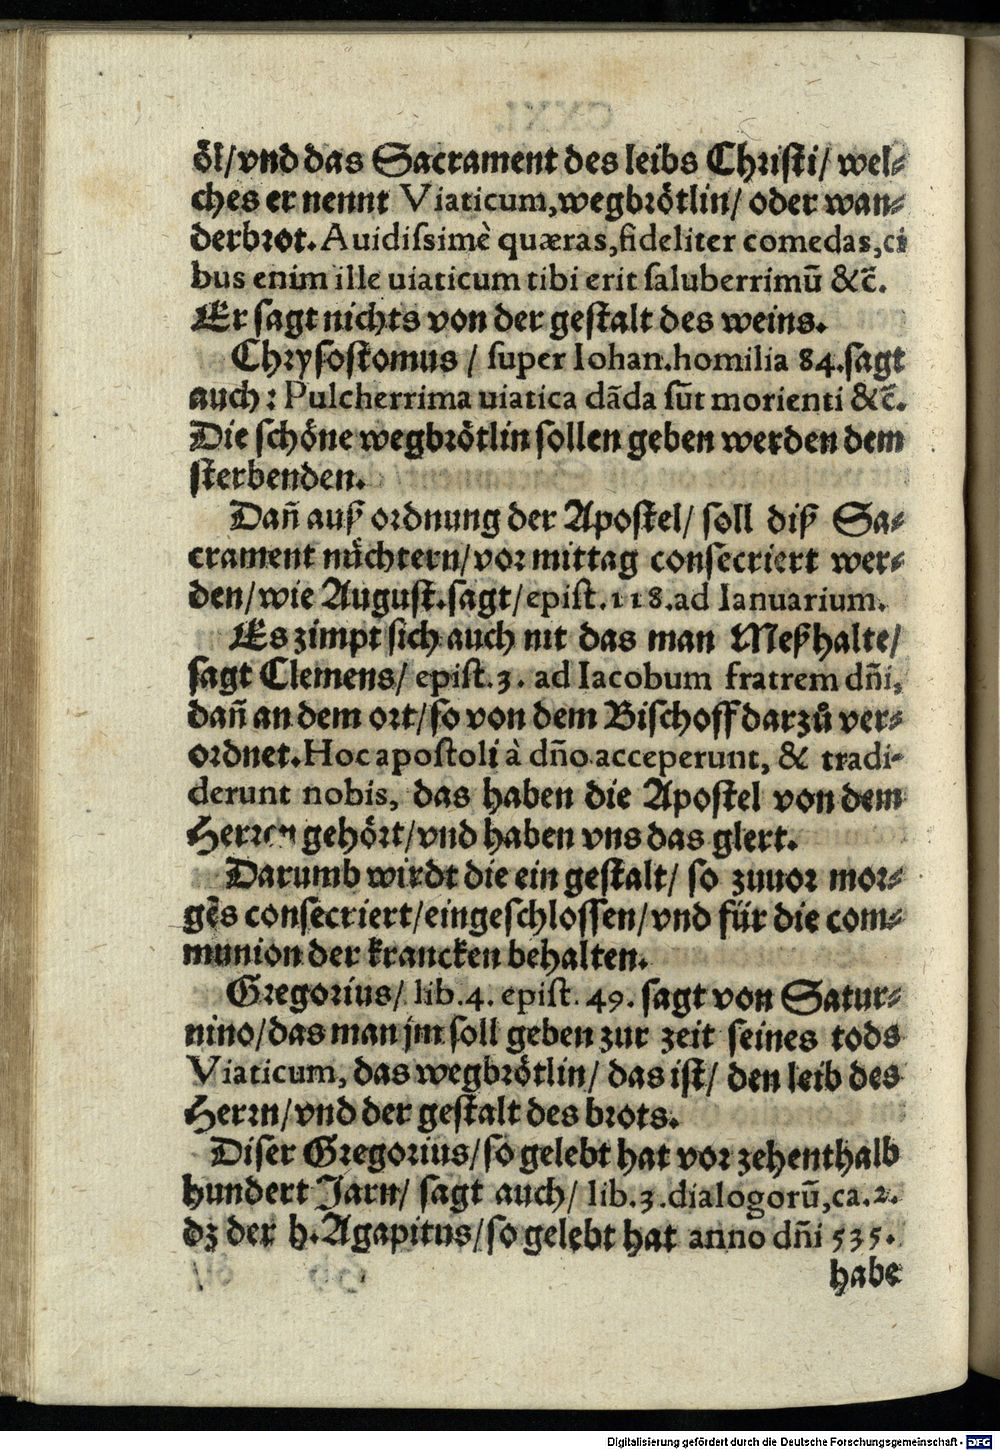 öl/vnd das Sacrament des leibs Christi/ wel⸗
ches er nennt Viaticum,wegbrötlin/ oder wan⸗
derbrot. Auidissimè quæras,fideliter comedas,ci
bus enim ille uiaticum tibi erit saluberrimũ &c̃.
Er sagt nichts von der gestalt des weins.
Chrysostomus / super Iohan.homilia 84.sagt
auch: Pulcherrima uiatica dãda sũt morienti &c̃.
Die schöne wegbrötlin sollen geben werden dem
sterbenden.
Dañ auß ordnung der Apostel/ soll diß Sa⸗
crament nüchtern/vor mittag consecriert wer⸗
den/wie August.sagt/epist.118.ad Ianuarium.
Es zimpt sich auch nit das man Meßhalte/
sagt Clemens/ epist.3. ad Iacobum fratrem dñi,
dañ an dem ort/so von dem Bischoff darzů ver⸗
ordnet.Hoc apostoli à dño acceperunt, & tradi-
derunt nobis, das haben die Apostel von dem
Herren gehört/vnd haben vns das glert.
Darumb wirdt die ein gestalt/ so zuuor mor⸗
gẽs consecriert/eingeschlossen/vnd für die com⸗
munion der krancken behalten.
Gregorius/ lib.4. epist. 49. sagt von Satur⸗
nino/das man jm soll geben zur zeit seines tods
Viaticum, das wegbrötlin/ das ist/ den leib des
Herrn/vnd der gestalt des brots.
Diser Gregorius/so gelebt hat vor zehenthalb
hundert Jarn/ sagt auch/ lib.3.dialogorũ,ca.2.
dz der h.Agapitus/so gelebt hat anno dñi 535.
habe
Digitalisierung gefördert durch die Deutsche Forschungsgemeinschaft - DFG